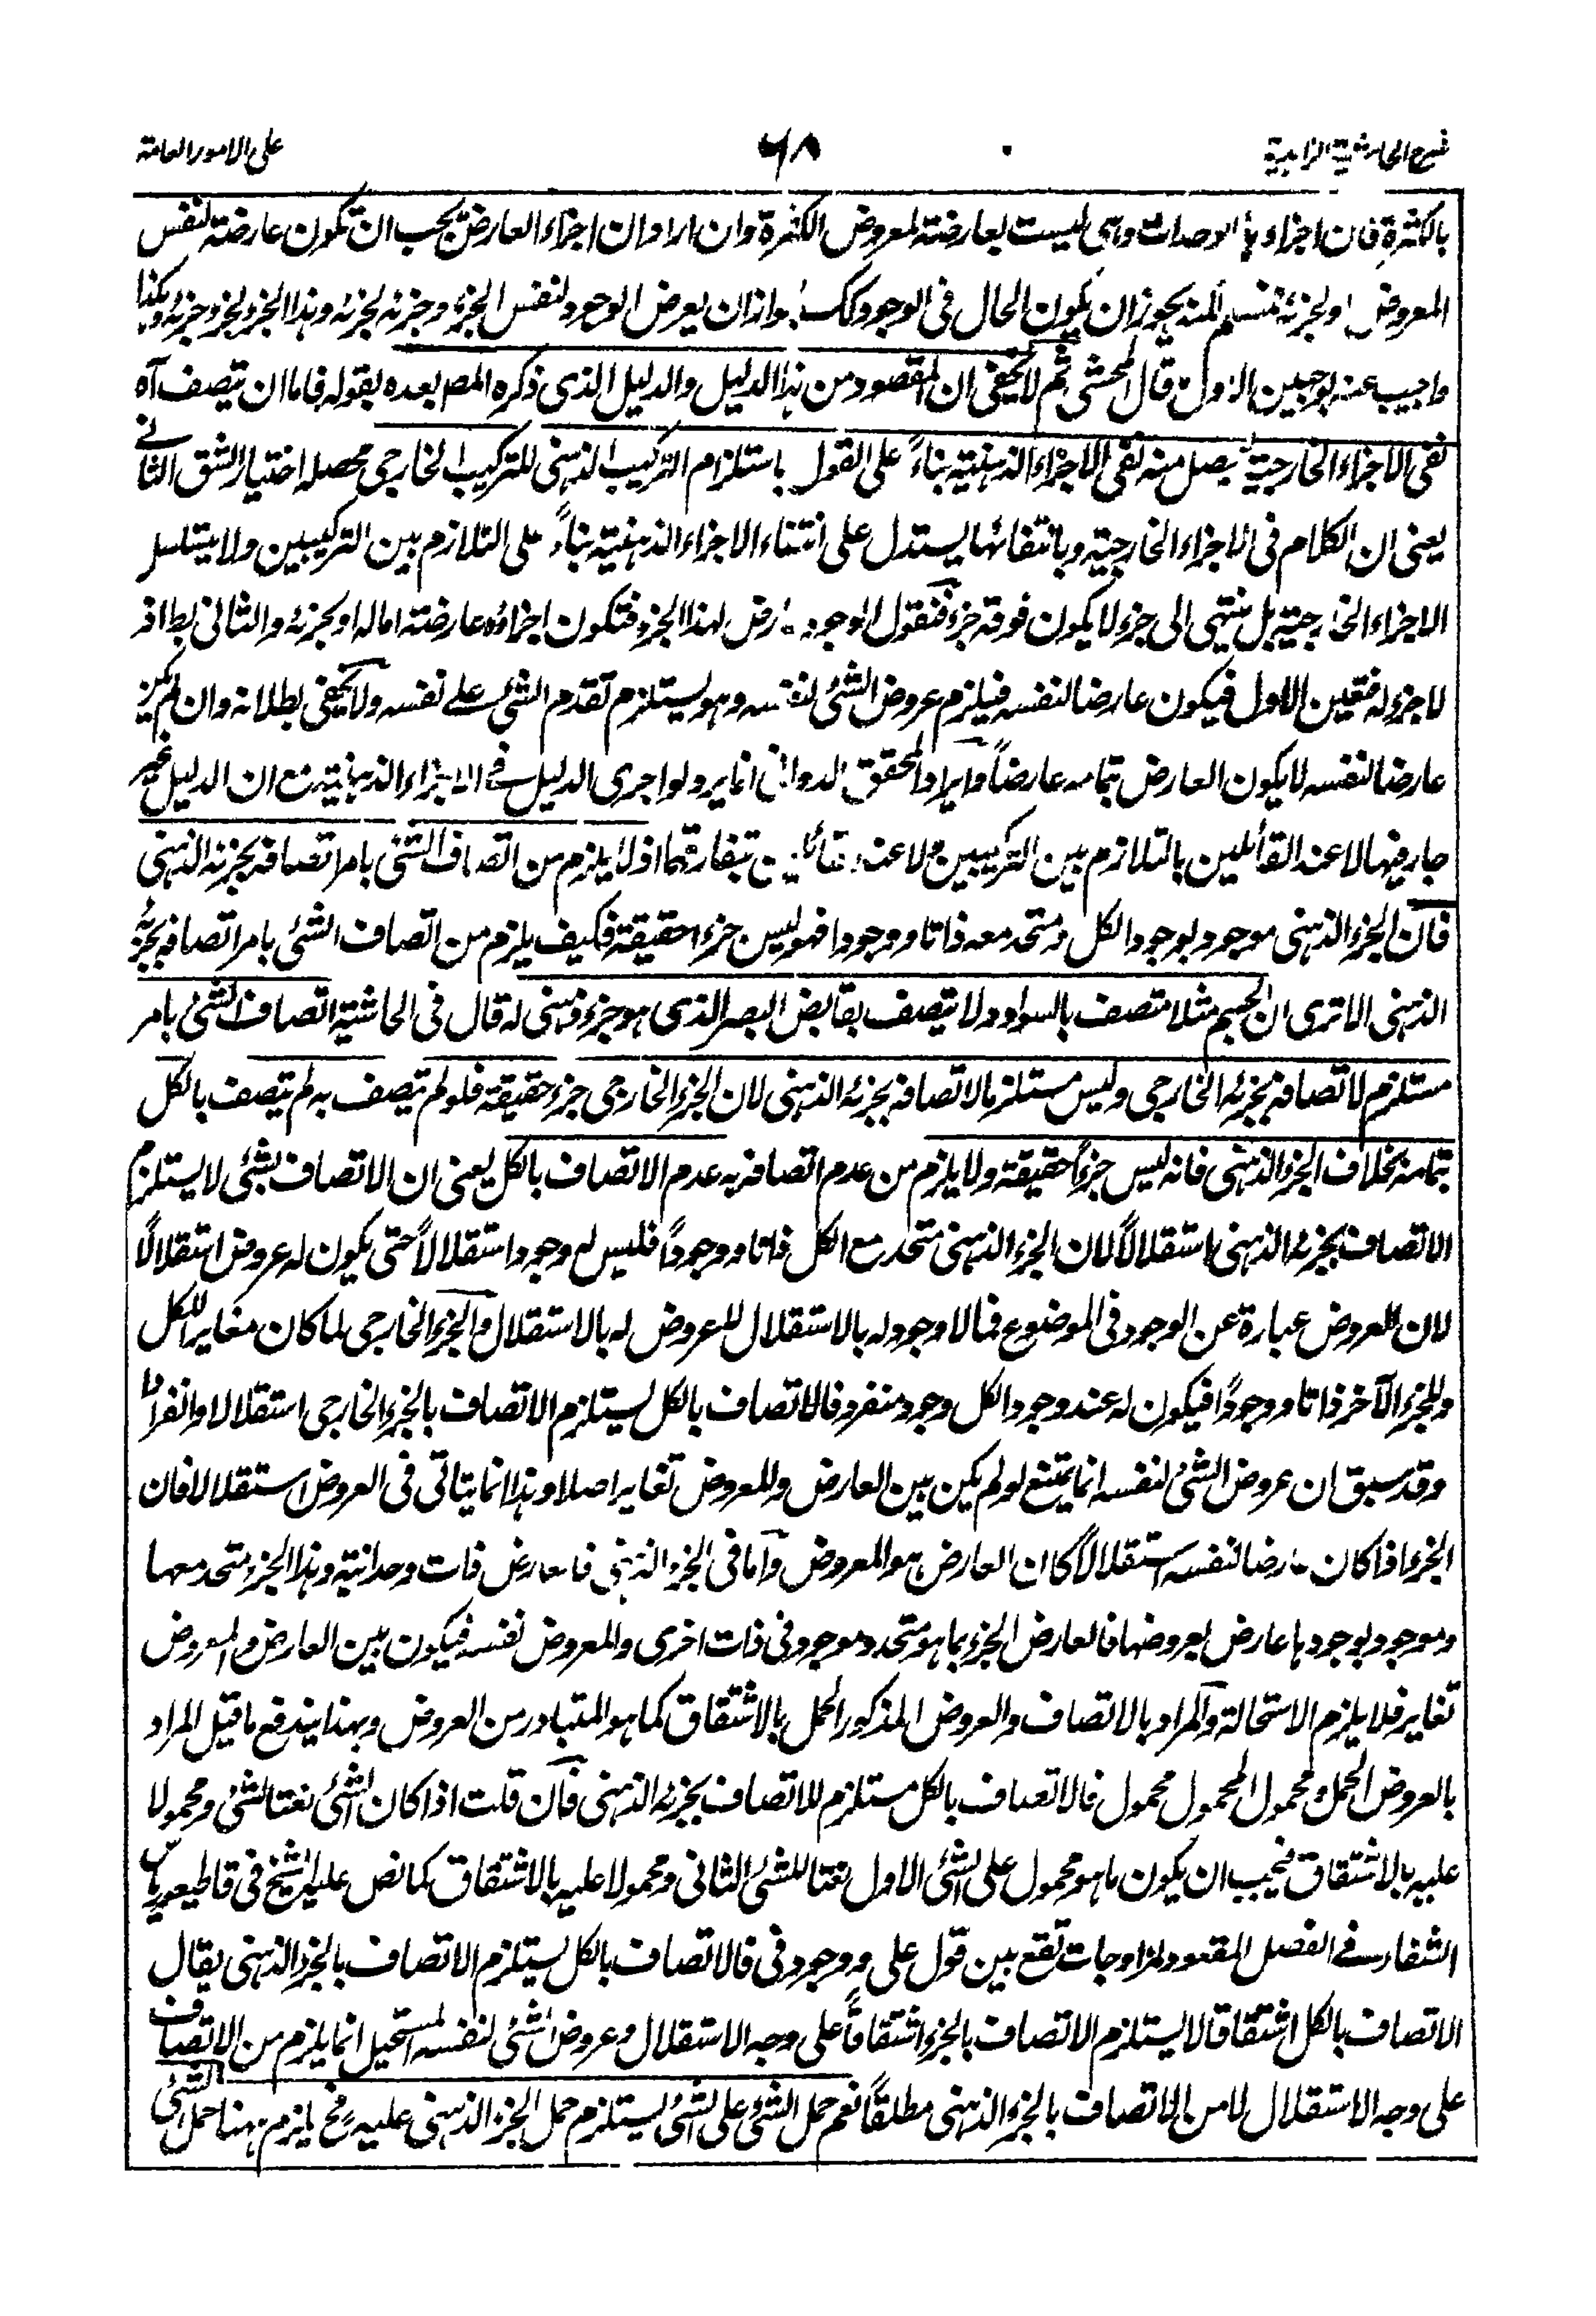 شرح الحاشية الزاهدية
٦٨
على الامور العامة
بالكثرة فان اجزاءها الوحدات وهى ليست بعارضة لمعروض الكثرة وان اراد ان اجزاء العارض يجب ان تكون عارضة لنفس
المعروض او لجزئه فنسلم لكنه يجوز ان يكون الحال فى الوجود كك لجواز ان يعرض الوجود لنفس الجزء وجزئه لجزئه وهذا الجزء لجزء جزئه وهكذا
واجيب عنه بوجهين الاول قال المحشى ثم لا يخفى ان المقصود من هذا الدليل والدليل الذى ذكره المص بعده بقوله فاما ان تتصف آه
نفى الاجزاء الخارجية يصل منه نفى الاجزاء الذهنية بناءً على القول باستلزام التركيب الذهنى للتركيب الخارجى محصله اختيار الشق الثانى
يعنى ان الكلام فى الاجزاء الخارجية وبانتفائها يستدل على انتفاء الاجزاء الذهنية بناءً على التلازم بين التركيبين ولا يتسلسل
الاجزاء الخارجية بل ينتهى الى جزء لا يكون فوقه جزء فنقول الوجود عارض لهذا الجزء فتكون اجزاؤه عارضة اما له او لجزئه والثانى بط اذ
لا جزء له فتعين الاول فيكون عارضا لنفسه فيلزم عروض الشئ لنفسه وهو يستلزم تقدم الشئ على نفسه ولا يخفى بطلانه وان لم يكن
عارضا لنفسه لا يكون العارض بتمامه عارضاً وايراد المحقق الدوانى انما يرد لو اجرى الدليل فى الاجزاء الذهنية مع ان الدليل غير
جار فيها لا عند القائلين بالتلازم بين التركيبين ولا عند القائلين بتفارقهما اذ لا يلزم من اتصاف الشئ بامر اتصافه بجزئه الذهنى
فان الجزء الذهنى موجود بوجود الكل ومتحد معه ذاتا ووجودا فهو ليس جزء احقيقة فكيف يلزم من اتصاف الشئ بامر اتصافه بجزئه
الذهنى الا ترى ان الجسم مثلا متصف بالسواد ولا يتصف بقابض البصر الذى هو جزء ذهنى له قال فى الحاشية اتصاف الشئ بامر
مستلزم لاتصافه بجزئه الخارجى وليس مستلزما لاتصافه بجزئه الذهنى لان الجزء الخارجى جزء حقيقة فلو لم تيصف به لم يتصف بالكل
بتمامه بخلاف الجزء الذهنى فانه ليس جزءاً حقيقة ولا يلزم من عدم اتصافه به عدم الاتصاف بالكل يعنى ان الاتصاف بشئ لا يستلزم
الاتصاف بجزئه الذهنى استقلالاً لان الجزء الذهنى متحد مع الكل ذاتا ووجوداً فليس له وجود استقلالاً حتى يكون له عروض استقلالًا
لان العروض عبارة عن الوجود فى الموضوع فما لا وجود له بالاستقلال لا عروض له بالاستقلال والجزء الخارجى لما كان مغايرا للكل
وللجزء الآخر ذاتا ووجودًا فيكون له عند وجود الكل وجود منفرد فالاتصاف بالكل يستلزم الاتصاف بالجزء الخارجى استقلالا وانفرادا
وقد سبق ان عروض الشئ لنفسه انما يمتنع لو لم يكن بين العارض والمعروض تغاير اصلا وهذا انما يتاتى فى العروض استقلالا فان
الجزء اذا كان عارضا لنفسه استقلالاً كان العارض هو المعروض واما فى الجزء الذهنى فالعارض ذات وحدانية وهذا الجزء متحد معها
وموجود بوجودها عارض بعروضها فالعارض الجزء بما هو متحد وموجود فى ذات اخرى والمعروض نفسه فيكون بين العارض والمعروض
تغاير فلا يلزم الاستحالة والمراد بالاتصاف والعروض المذكور الحمل بالاشتقاق كما هو المتبادر من العروض وبهذا يندفع ما قيل المراد
بالعروض الحمل ومحمول المحمول محمول فالاتصاف بالكل مستلزم للاتصاف بجزئه الذهنى فان قلت اذا كان الشئ نعتا لشئ ومحمولا
عليه بالاشتقاق فيجب ان يكون ما هو محمول على الشئ الاول نعتا للشئ الثانى ومحمولا عليه بالاشتقاق كما نص عليه الشيخ فى قاطيغورياس
الشفاء فى الفصل المقعود لمزاوجات تقع بين قول على ووجود فى فالاتصاف بالكل يستلزم الاتصاف بالجزء الذهنى يقال
الاتصاف بالكل اشتقاقا لا يستلزم الاتصاف بالجزء اشتقاقاً على وجه الاستقلال وعروض الشئ لنفسه المستحيل انما يلزم من الاتصاف
على وجه الاستقلال لا من الاتصاف بالجزء الذهنى مطلقاً نعم حمل الشئ على الشئ يستلزم حمل الجزء الذهنى عليه فح يلزم ههنا حمل الشئ